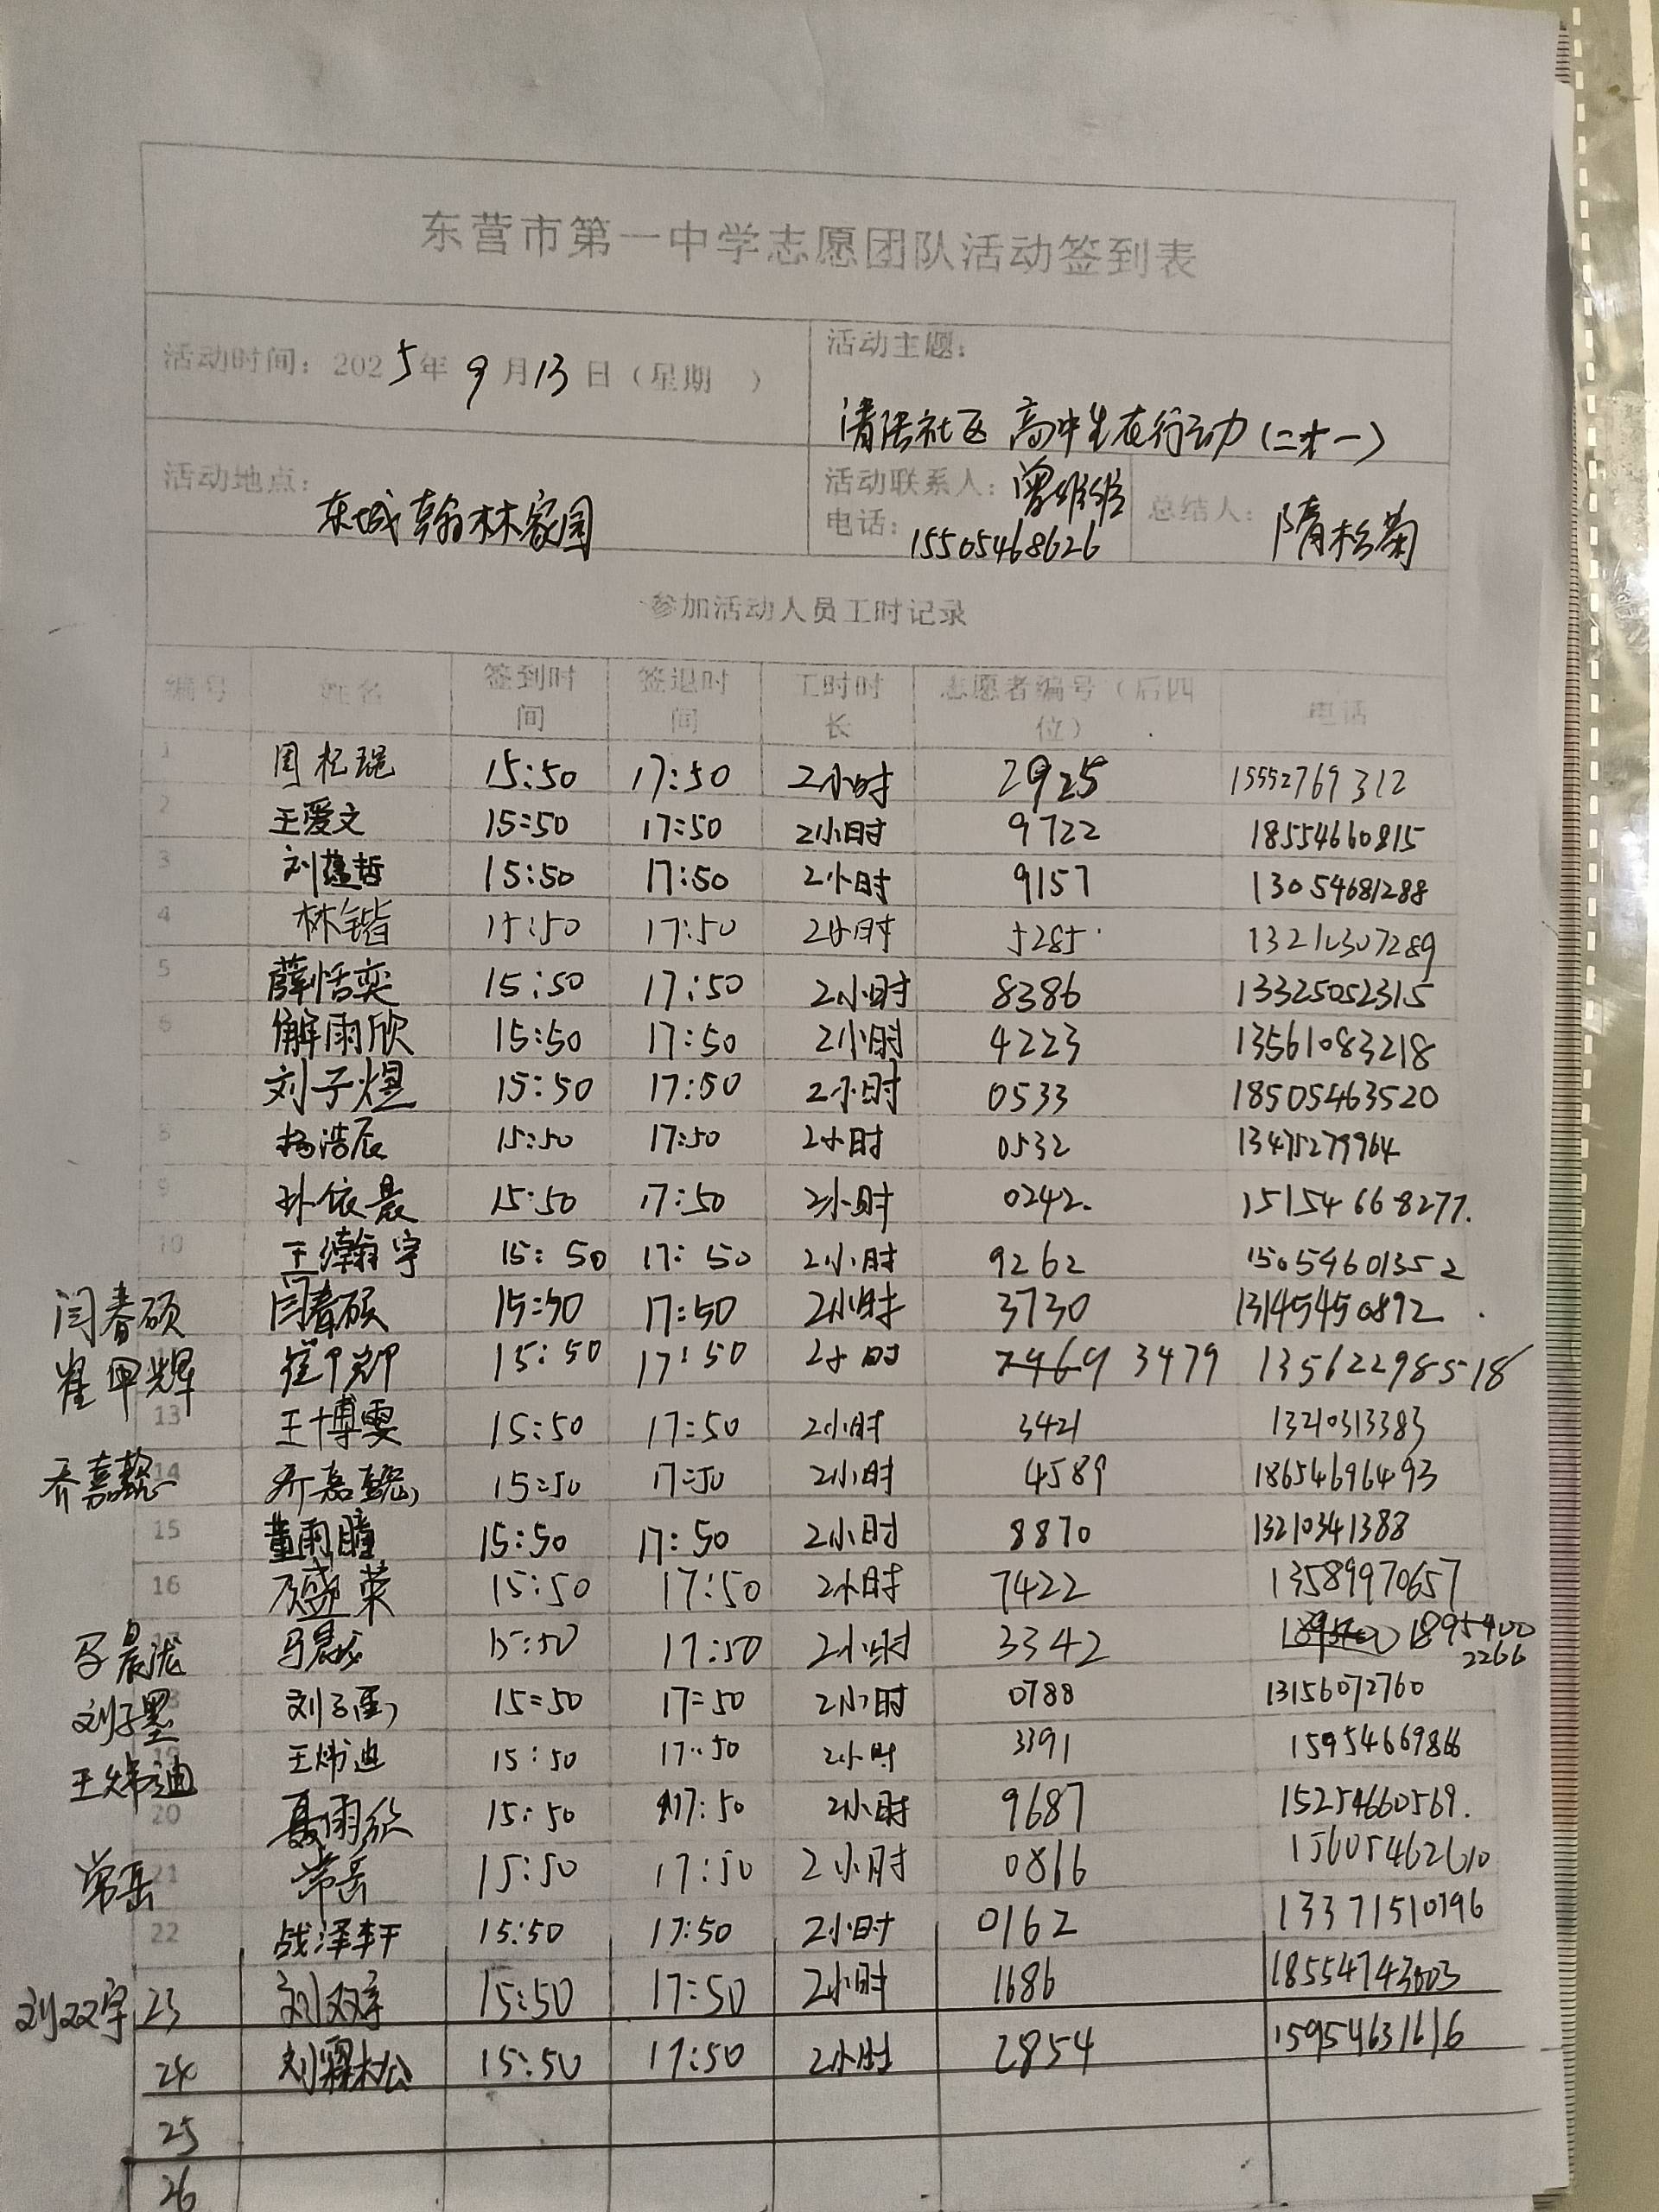 东营市第一中学志愿团队活动签到表
活动时间：2025年9月13日（星期 ）
活动主题：
清洁社区 高中生在行动（二十一）
活动地点：东城翰林家园
活动联系人：曾维维
电话：15505468626
总结人：隋松菊
参加活动人员工时记录
编号 姓名 签到时间 签退时间 工时时长 志愿者编号（后四位） 电话
1 周 15:50 17:50 2小时 2925 15552769312
2 王爱文 15:50 17:50 2小时 9722 18554660815
3 刘蕴哲 15:50 17:50 2小时 9157 13054681288
4 林锴 15:50 17:50 2小时 5285 13210307289
5 薛恬奕 15:50 17:50 2小时 8386 13325052315
6 解雨欣 15:50 17:50 2小时 4223 13561083218
刘子煜 15:50 17:50 2小时 0533 18505463520
8 杨浩辰 15:50 17:50 2小时 0532 13475279964
9 孙依晨 15:50 17:50 2小时 0242. 15154668277.
10 王瀚宇 15:50 17:50 2小时 9262 15054601352
闫春硕 闫春硕 15:50 17:50 2小时 3730 13145450892
崔甲辉 崔甲辉 15:50 17:50 2小时 3479 13562298518
13 王博雯 15:50 17:50 2小时 3421 13210313383
乔嘉懿 14 乔嘉懿 15:50 17:50 2小时 4589 18654696493
15 董雨瞳 15:50 17:50 2小时 8870 13210341388
16 盛荣 15:50 17:50 2小时 7422 13589970657
17 15:50 17:50 2小时 3342 18954002266
刘子墨 18 刘子墨 15:50 17:50 2小时 0788 13156072760
王炜迪 19 王炜迪 15:50 17:50 2小时 3391 15954669866
20 聂雨 15:50 17:50 2小时 9687 15254660569.
常岳 21 常岳 15:50 17:50 2小时 0866 15605462610
22 战泽轩 15:50 17:50 2小时 0162 13371510796
刘双宇 23 刘双宇 15:50 17:50 2小时 1686 18554743003
24 刘霖松 15:50 17:50 2小时 2854 15954631616
25
26